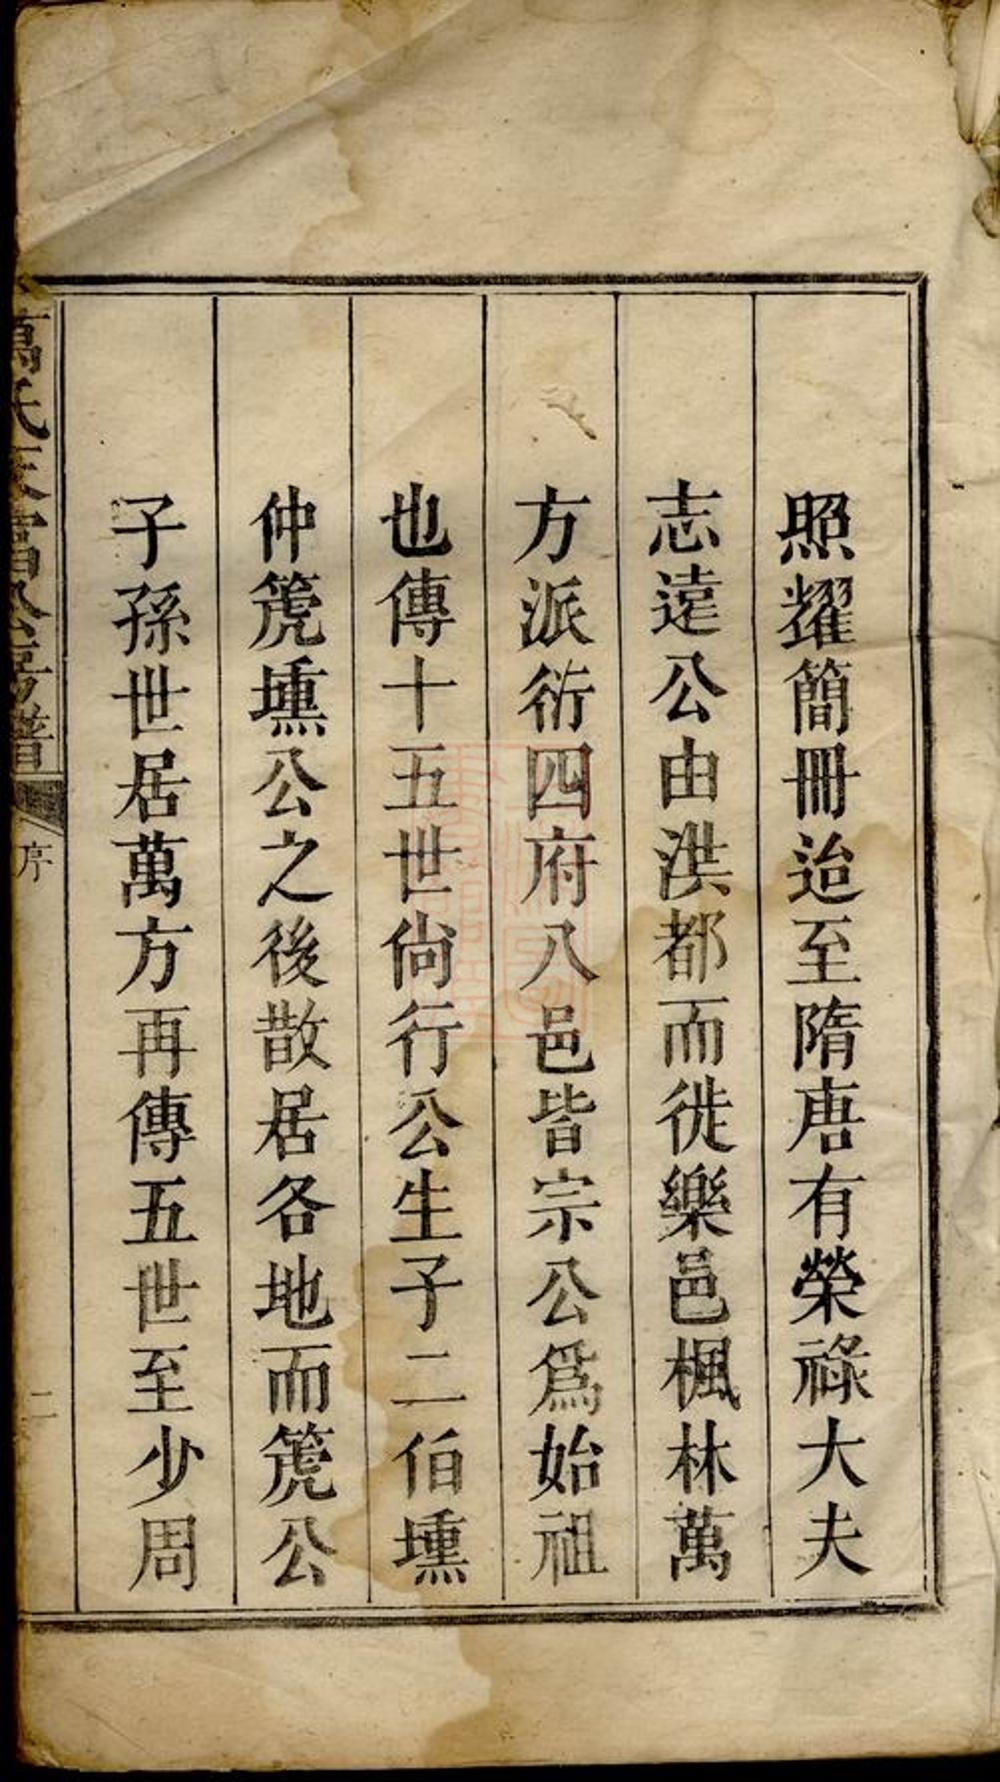 照耀簡冊迨至隋唐有榮祿大夫
志遠公由洪都而徙樂邑楓林萬
方派衍四府八邑皆宗公爲始祖
也傳十五世尙行公生子二伯壎
仲篪壎公之後散居各地而篪公
子孫世居萬方再傳五世至少周
萬氏富公房譜
序
二